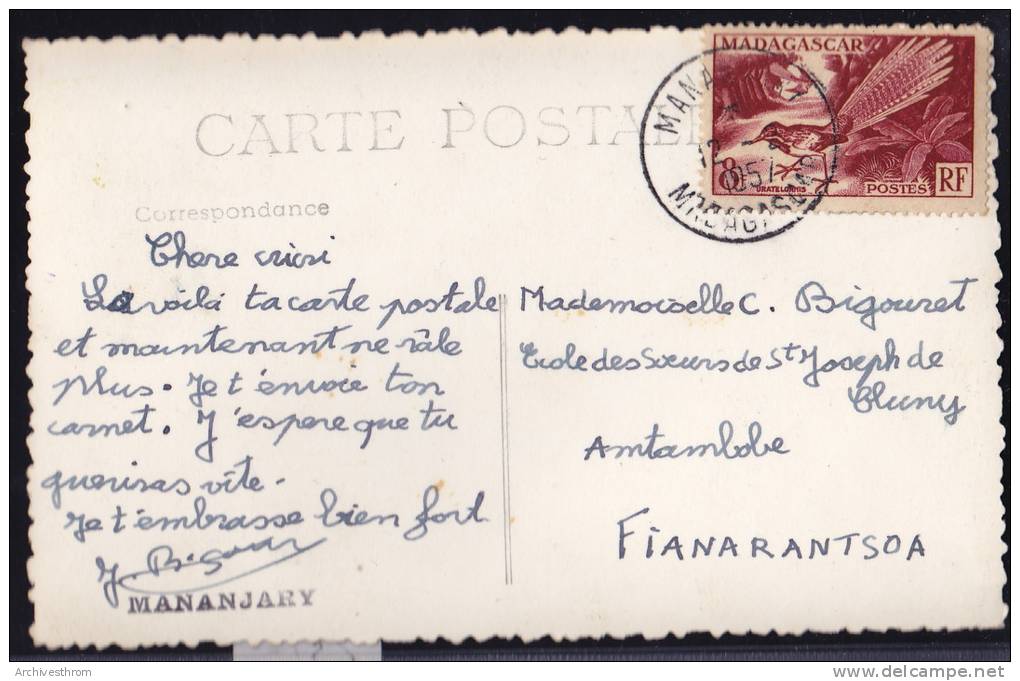 CARTE POSTALE
MADAGASCAR
8F
URATELORNIS
POSTES RF
MANANJARY
12
1957
MADAGASCAR
Correspondance
Chere cricri
La voilà ta carte postale
et maintenant ne râle
plus. Je t'envoie ton
carnet. J'espere que tu
gueriras vîte.
Je t'embrasse bien fort
J. Bigouret
MANANJARY
Mademoiselle C. Bigouret
Ecole des Sœurs de St Joseph de
Cluny
Amtambobe
FIANARANTSOA
Archivesthrom
delcampe.net